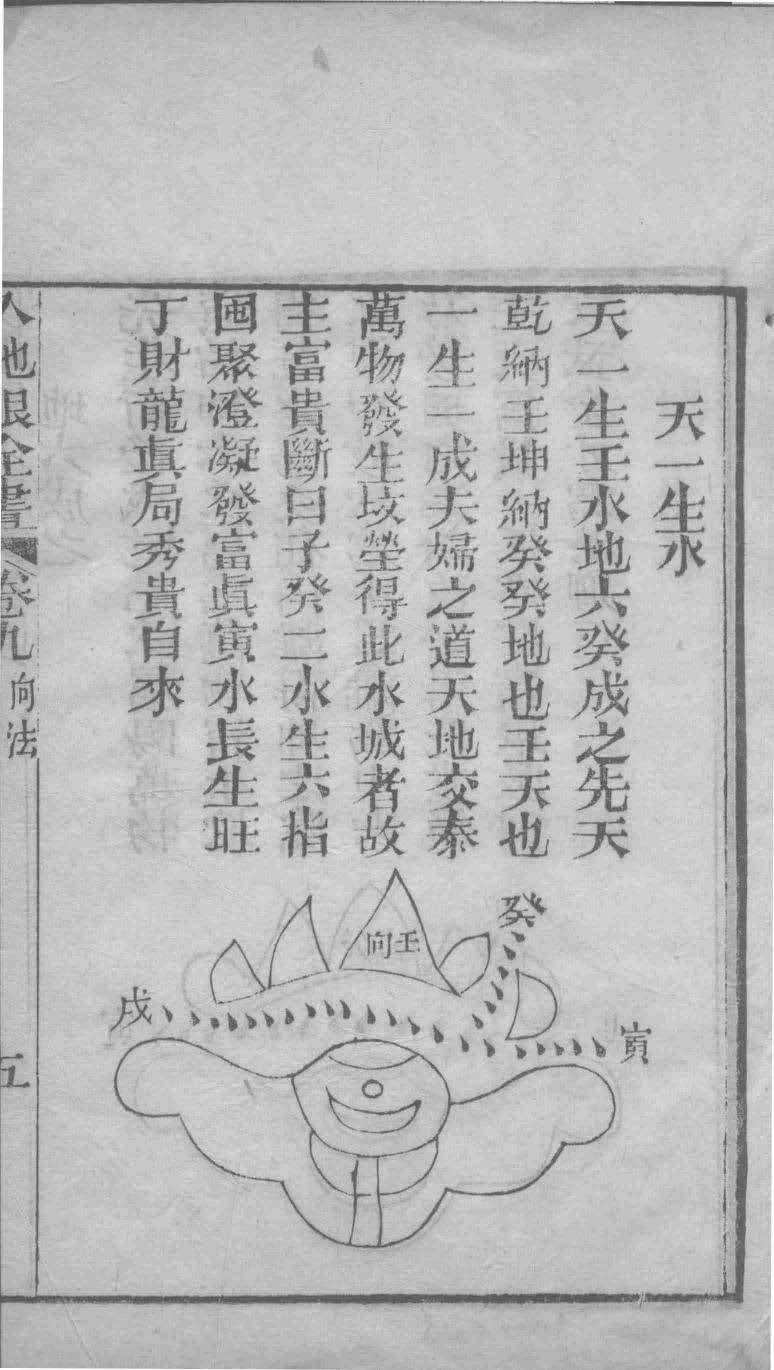 天一生水
天一生壬水地六癸成之先天
乾納壬坤納癸癸地也壬天也
一生一成夫婦之道天地交泰
萬物發生坟塋得此水城者故
主富貴斷曰子癸二水生六指
囤聚澄凝發富眞寅水長生旺
丁財龍眞局秀貴自來
癸
壬向
戌
寅
人地眼全書 卷九 向法 五